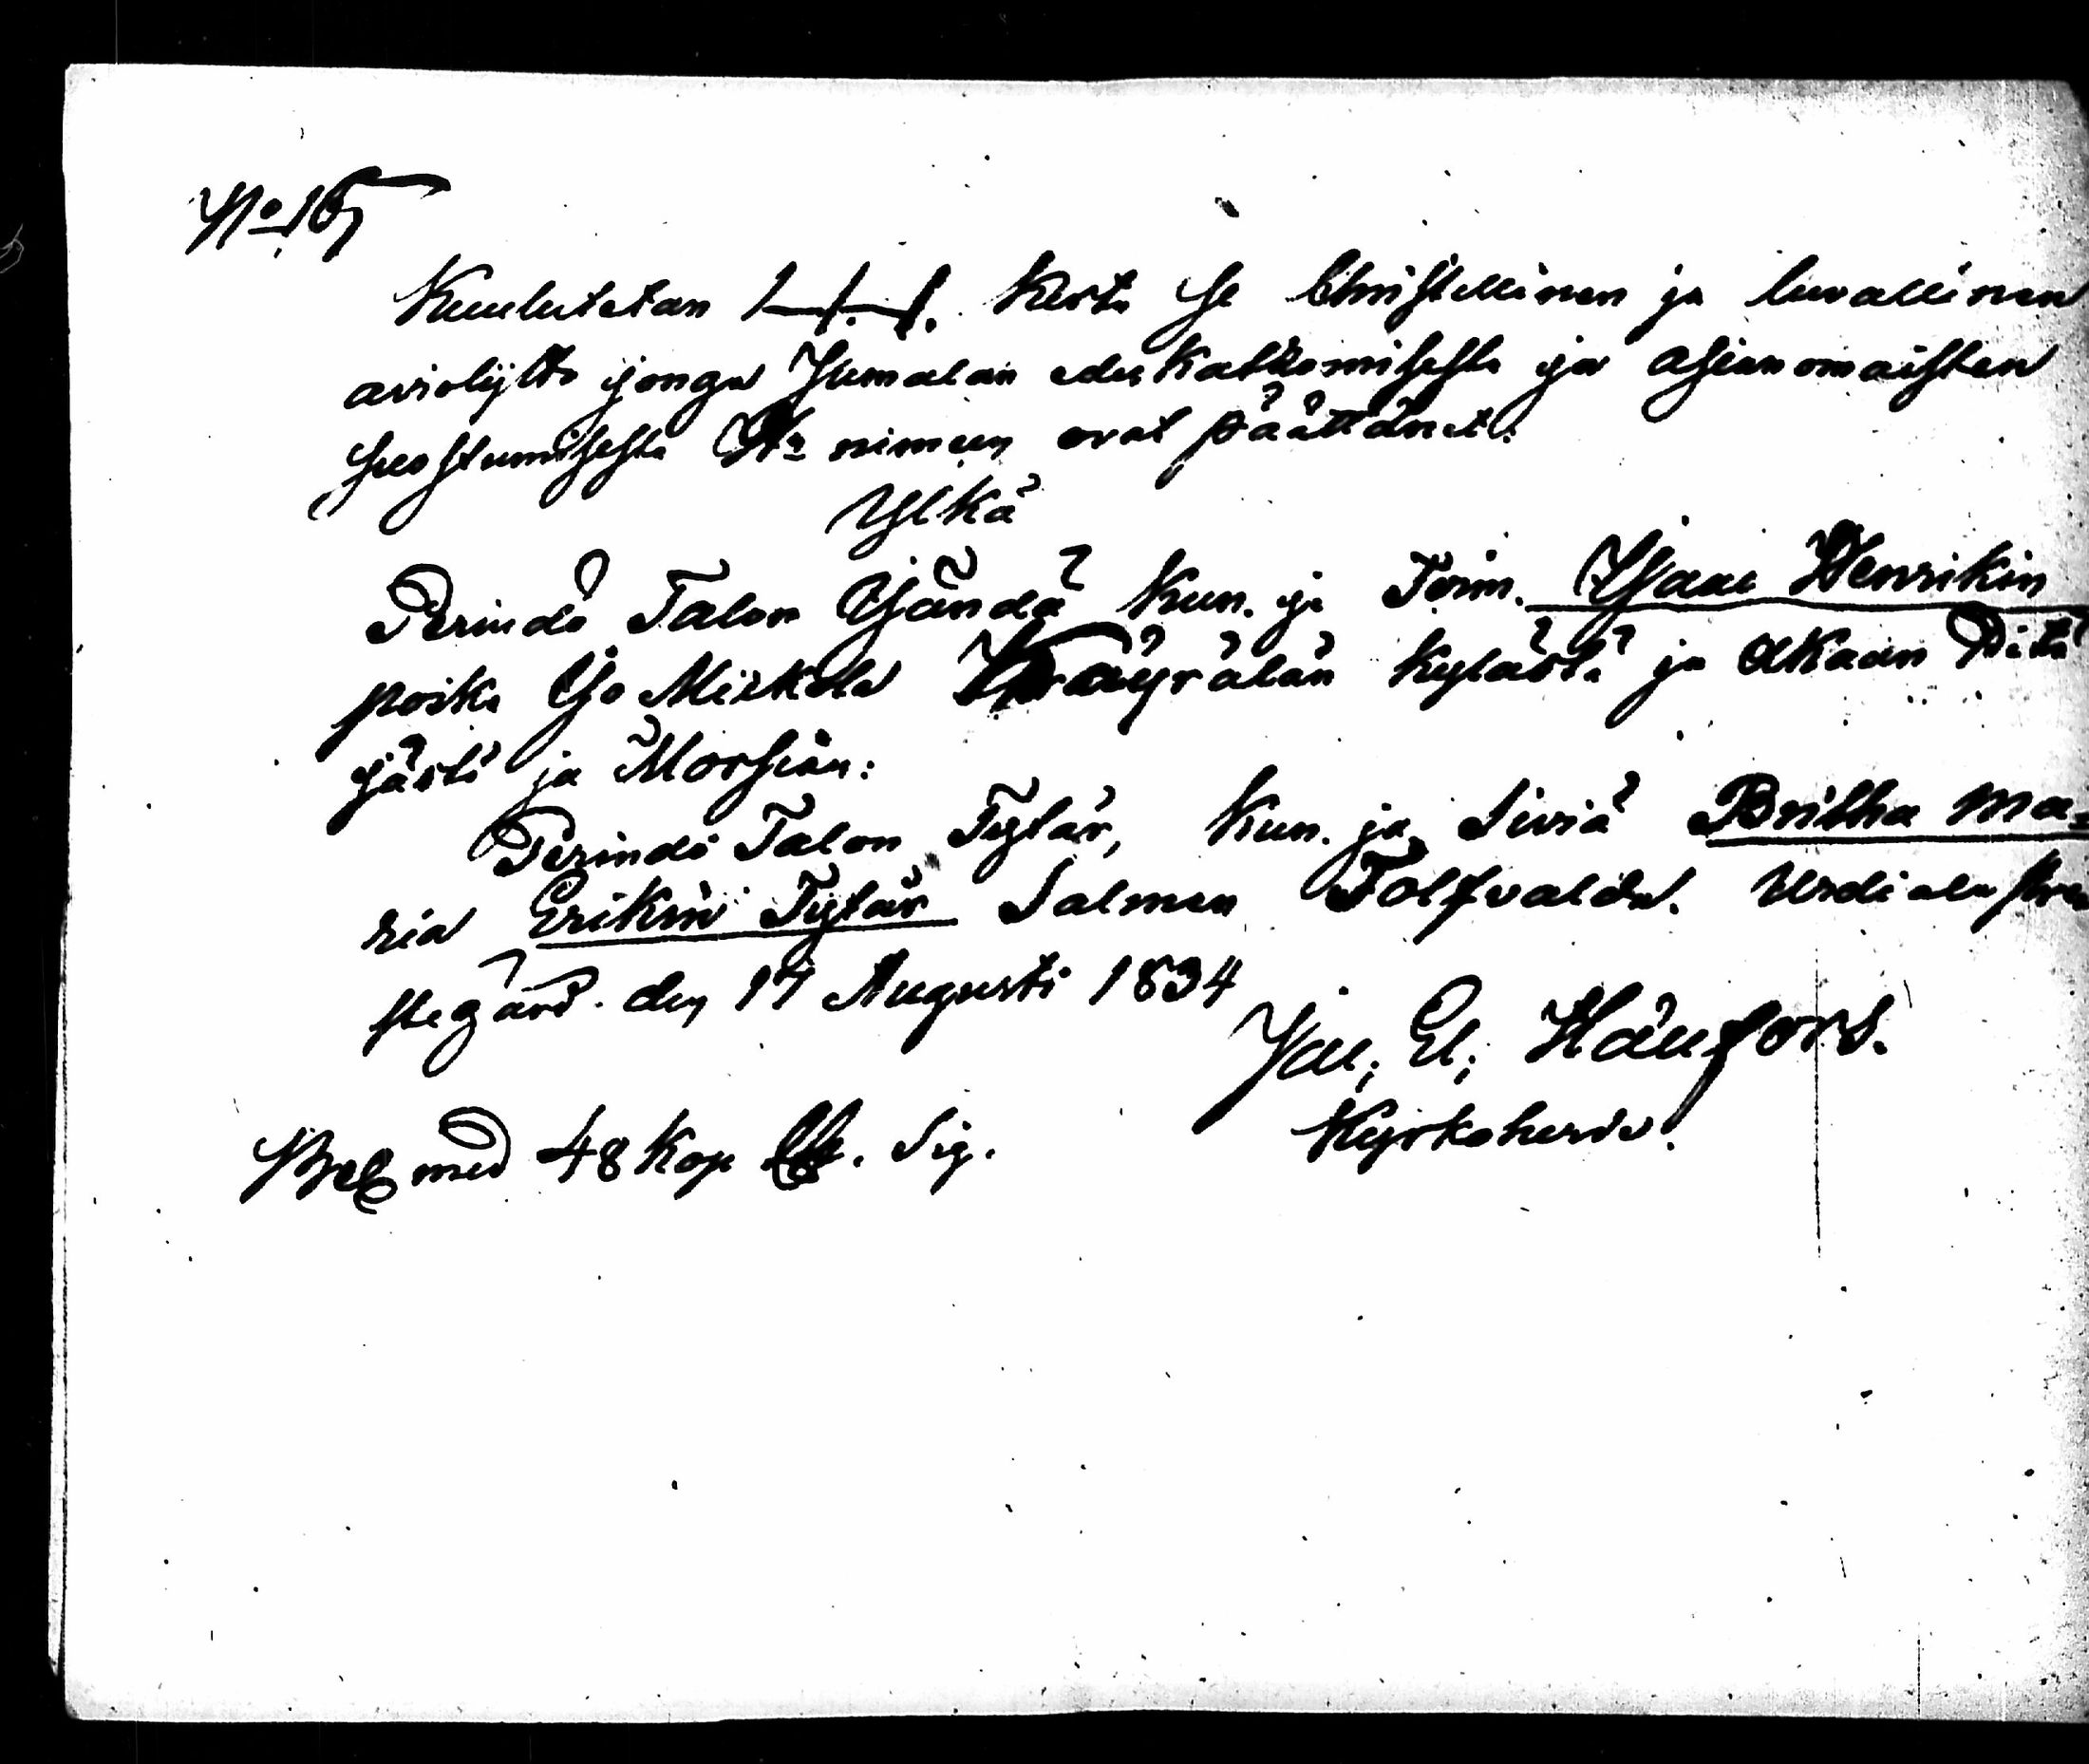 No 165
Kuulutetan 1. 1. 1. Kerta se Christillinen ja luvallinen
aviolijtto jonga Jumalan edes Katzomisesta ja asianomaisten
suostumisesta nimeen ovat päättänet.
Ylkä
Perindö Talon Isändä Kun. ja Toim. Isaac Henrikin
poika Yso Mickola Käyrälän kylästä ja Akaan Pitä
jästä ja Morsian:
Perindö Talon Tytär, Kun. ja Siviä Britha Ma-
ria Erikin Tytär Salmen Tolfvalda. Urdiala Pre
stegård den 17 Augusti 1834
Kyrkoherde.
med 48 Kop Sig.